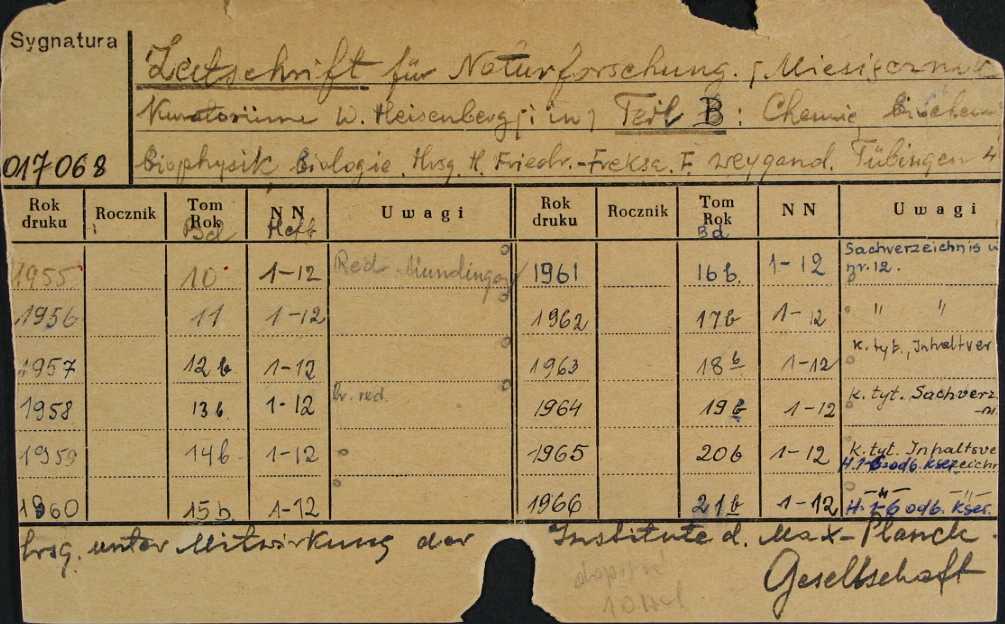 Sygnatura
Zeitschrift für Naturforschung. [Miesięcznik
Kuratorium W. Heisenberg [i in] Teil B: Chemie, Biochem
017068
Biophysik, Biologie. Hrsg. H. Friedr.-Freksa. F. Weygand. Tübingen
Rok druku Rocznik Tom Rok Bd NN Heft Uwagi Rok druku Rocznik Tom Rok Bd NN Uwagi
1955 10 1-12 Red. 1961 16b. 1-12 Sachverzeichnis w nr. 12.
1956 11 1-12 1962 17b 1-12 " "
1957 12b 1-12 1963 18b 1-12 k. tyt., Inhaltver
1958 13b. 1-12 Br. red. 1964 19b 1-12 k. tyt. Sachverz.
1959 14b 1-12 1965 20b 1-12 k. tyt. Inhaltsve
H. 1-6 odb. kser.
1960 15b. 1-12 1966 21b 1-12 -"- -"-
H. 1-6 odb. kser.
hrsg. unter Mitwirkung der Institute d. Max-Planck-
Gesellschaft